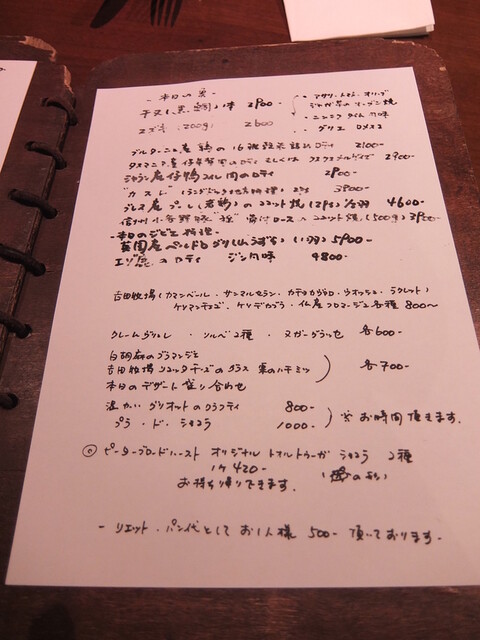 - 本日の魚 -
チヌ(黒鯛)1本 2900-
・アサリ、トマト、オリーブ
じゃが芋のオーブン焼
2600
・ニンニク タイム風味
・グリエ ロメスコ
ブルターニュ産 鶏の ロティ 2100-
タスマニア産 仔羊 のロティ もしくは 2900-
シャラン産 仔鴨 ムネ肉のロティ 2800-
"ガスト" 3800-
ブレス産 プーレ(若鶏)の ココット焼(2P分) 1/2羽 4600-
信州 小谷野豚 骨付ロース ココット焼(500g) 3800-
- 本日のジビエ料理 -
英国産 ペルドロ グリ(山うずら) (1羽) 5900-
エゾ鹿 ロティ ジン風味 4800-
吉田牧場(カマンベール・サンマルセラン・カチョカヴァロ・ウオッシュ・ラクレット)
・仏産フロマージュ 各種 800~
クレームブリュレ ・ ソルベ2種 ・ ヌガーグラッセ 各600-
白胡麻のブラマンジェ
吉田牧場 リコッタチーズのグラス 栗のハチミツ 各700-
本日のデザート盛り合わせ
温かい グリオットのクラフティ 800-
プラ・ド・ショコラ 1000- ※お時間頂きます。
◎ ピーターブロードハースト オリジナル トオルトゥーガ ショコラ 2種
1ケ 420-
お持ち帰りできます。
- リエット・パン代として お1人様 500- 頂いております -